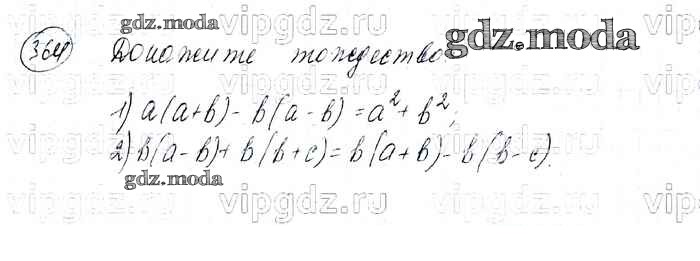 gdz.moda
vipgdz.ru vipgdz.ru vipgdz.ru
364 Докажите тождество gdz.moda
1) a(a+b) - b(a-b) = a² + b²;
vipgdz.ru vipgdz.ru vipgdz.ru vipgdz.ru
2) b(a-b) + b(b+c) = b(a+b) - b(b-c).
gdz.moda
vipgdz.ru vipgdz.ru vipgdz.ru vipgdz.ru